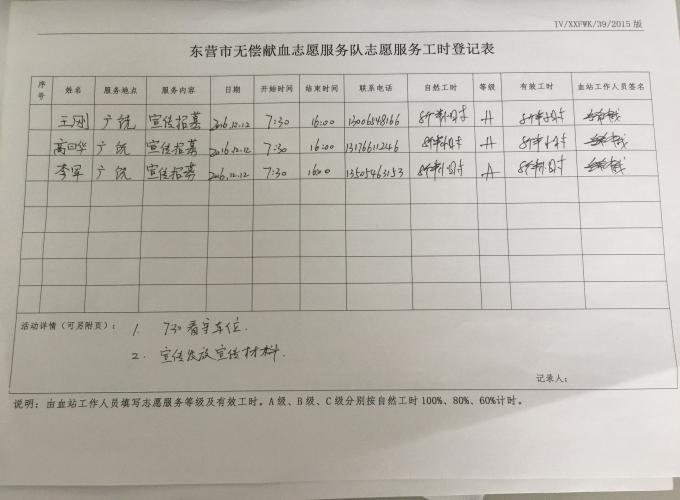 IV/XXFWK/39/2015 版
东营市无偿献血志愿服务队志愿服务工时登记表
序号 姓名 服务地点 服务内容 日期 开始时间 结束时间 联系电话 自然工时 等级 有效工时 血站工作人员签名
王刚 广饶 宣传招募 2016.12.12 7:30 16:00 13006548166 8个半小时 A 8个半小时
高曰华 广饶 宣传招募 2016.12.12 7:30 16:00 13176611246 8个半小时 A 8个半小时
李军 广饶 宣传招募 2016.12.12 7:30 16:00 13505463153 8个半小时 A 8个半小时
活动详情（可另附页）： 1. 7:30看守车位.
2. 宣传发放宣传材料.
记录人：
说明：由血站工作人员填写志愿服务等级及有效工时。A级、B级、C级分别按自然工时100%、80%、60%计时。